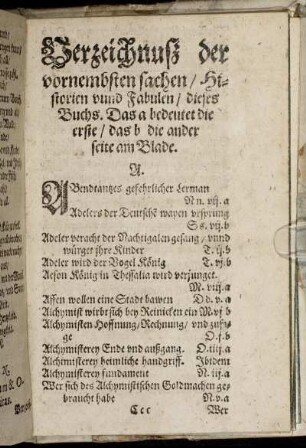 Verzeichnuß der
vornembsten sachen / Hi-
storien vnnd Fabulen / dieses
Buchs. Das a bedeutet die
erste / das b die ander
seite am Blade.
A.
ABendtantzes gefehrlicher Lerman
Nn. vij. a
Adelers der Teutschẽ wapen vrsprung
Ss. vij. b
Adeler veracht der Nachtigalen gesang / vnnd
würget ihre Kinder T. ij. b
Adeler wird der Vogel König T. vj. b
Aeson König in Thessalia wird verjunget.
M. viij. a
Affen wollen eine Stadt bawen Dd. v. a
Alchymist wirbt sich bey Reinicken ein M. vj b
Alchymisten Hoffnung / Rechnung / vnd zufu-
ge O. j. b
Alchymisterey Ende vnd außgang. O. iiij. a
Alchimisterey heimliche handgriff. Ibidem
Alchymisterey fundament N. iij. a
Wer sich des Alchymistischen Goldmachen ge-
braucht habe N. v. a
Ccc Wer